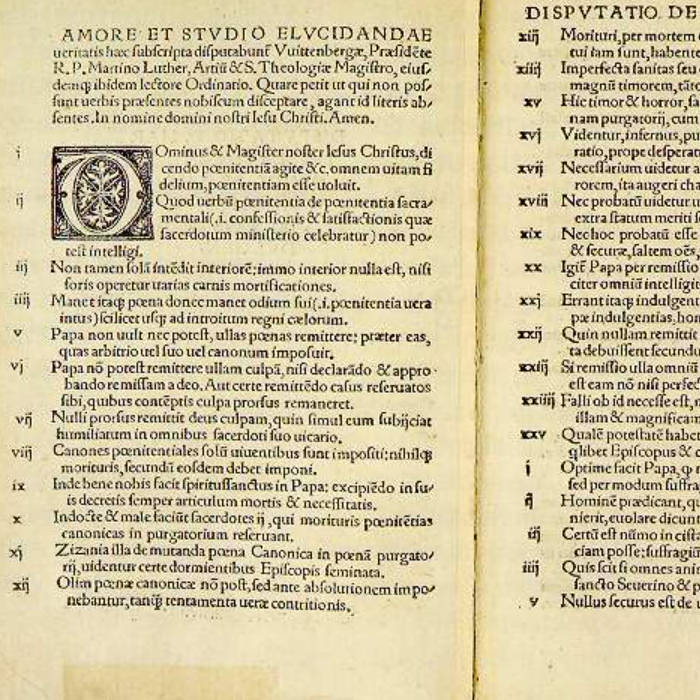 AMORE ET STVDIO ELVCIDANDAE
ueritatis hæc subscripta disputabunt̃ Vuittenbergæ, Præsidẽte
R. P. Martino Luther, Artiũ & S. Theologiæ Magistro, eius/
demq; ibidem lectore Ordinario. Quare petit ut qui non pos/
sunt uerbis præsentes nobiscum disceptare, agant id literis ab/
sentes. In nomine domini nostri Iesu Christi. Amen.
i DOminus & Magister noster Iesus Christus, di
cendo pœnitentiã agite &c. omnem uitam fi
delium, pœnitentiam esse uoluit.
ij Quod uerbũ pœnitentia de pœnitentia sacra/
mentali (.i. confessionis & satisfactionis quæ
sacerdotum ministerio celebratur) non po/
test intelligi.
iij Non tamen solã intẽdit interiorẽ: immo interior nulla est, nisi
foris operetur uarias carnis mortificationes.
iiij Manet itaq; pœna donec manet odium sui (.i. pœnitentia uera
intus) scilicet usq; ad introitum regni cælorum.
v Papa non uult nec potest, ullas pœnas remittere: præter eas,
quas arbitrio uel suo uel canonum imposuit.
vj Papa nõ potest remittere ullam culpã, nisi declarãdo & appro-
bando remissam a deo. Aut certe remittẽdo casus reseruatos
sibi, quibus contẽptis culpa prorsus remaneret.
vij Nulli prorsus remittit deus culpam, quin simul eum subijciat
humiliatum in omnibus sacerdoti suo uicario.
viij Canones pœnitentiales solũ uiuentibus sunt impositi: nihilq;
morituris, secundũ eosdem debet imponi.
ix Inde bene nobis facit spiritussanctus in Papa: excipiẽdo in su/
is decretis semper articulum mortis & necessitatis.
x Indocte & male faciũt sacerdotes ij, qui morituris pœnitẽtias
canonicas in purgatorium reseruant.
xj Zizania illa de mutanda pœna Canonica in pœnã purgato/
rij, uidentur certe dormientibus Episcopis seminata.
xij Olim pœnæ canonicæ nõ post, sed ante absolutionem impo/
nebantur, tanq̃ tentamenta ueræ contritionis.
DISPVTATIO DE
xiij Morituri, per mortem
tui iam sunt, habente
xiiij Imperfecta sanitas seu
magnũ timorem, tãto
xv Hic timor & horror, sa
nam purgatorij, cum
xvj Videntur, infernus, pu
ratio, prope desperat
xvij Necessarium uidetur a
rorem, ita augeri cha
xviij Nec probatũ uidetur u
extra statum meriti s
xix Nec hoc probatũ esse
& securæ, saltem oẽs,
xx Igit̃ Papa per remissio
citer omniũ intelligit
xxj Errant itaq; indulgent
pæ indulgentias, hom
xxij Quin nullam remittit
ta debuissent secundu
xxiij Si remissio ulla omniũ
est eam nõ nisi perfec
xxiiij Falli ob id necesse est, m
illam & magnificam
xxv Qualẽ potestatẽ habe
q̃libet Episcopus & c
j Optime facit Papa, q
sed per modum suffra
ij Hominẽ prædicant, qu
nierit, euolare dicunt
iij Certũ est nũmo in cista
ciam posse: suffragiũ
iiij Quis scit si omnes anim
sancto Seuerino & p
v Nullus securus est de u